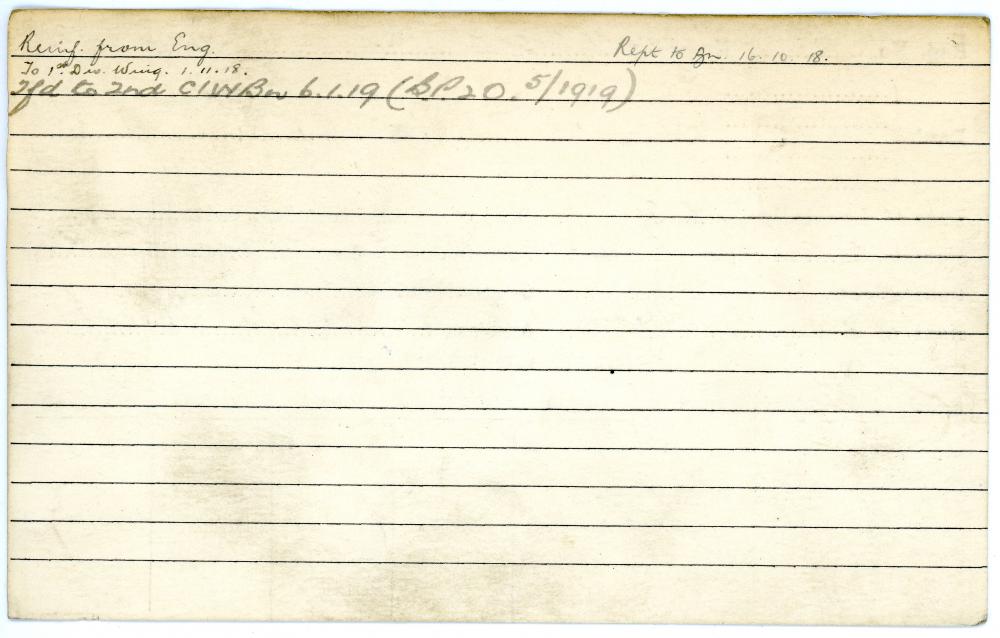 Reinf. from Eng. Rept to Bn. 16.10.18.
To 1st Div. Wing. 1.11.18.
Tfd to 2nd CIWBn 6.1.19 (B.P.20.5/1919)